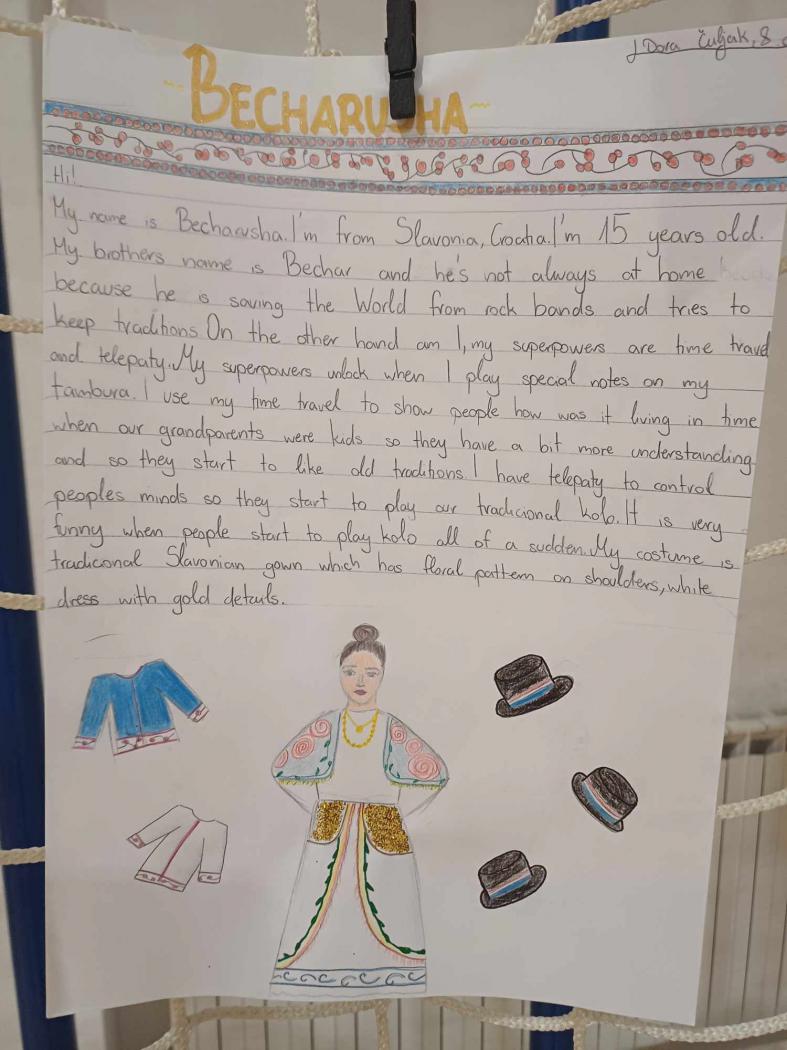 Dora Čuljak, 8.
~BECHARUSHA~
Hi!
My name is Becharusha. I'm from Slavonia, Croatia. I'm 15 years old.
My brothers name is Bechar and he's not always at home
because he is saving the World from rock bands and tries to
keep traditions. On the other hand am I, my superpowers are time travel
and telepaty. My superpowers unlock when I play special notes on my
tambura. I use my time travel to show people how was it living in time
when our grandparents were kids so they have a bit more understanding
and so they start to like old traditions. I have telepaty to control
peoples minds so they start to play our tradicional kolo. It is very
funny when people start to play kolo all of a sudden. My costume is
tradicional Slavonian gown which has floral pattern on shoulders, white
dress with gold details.